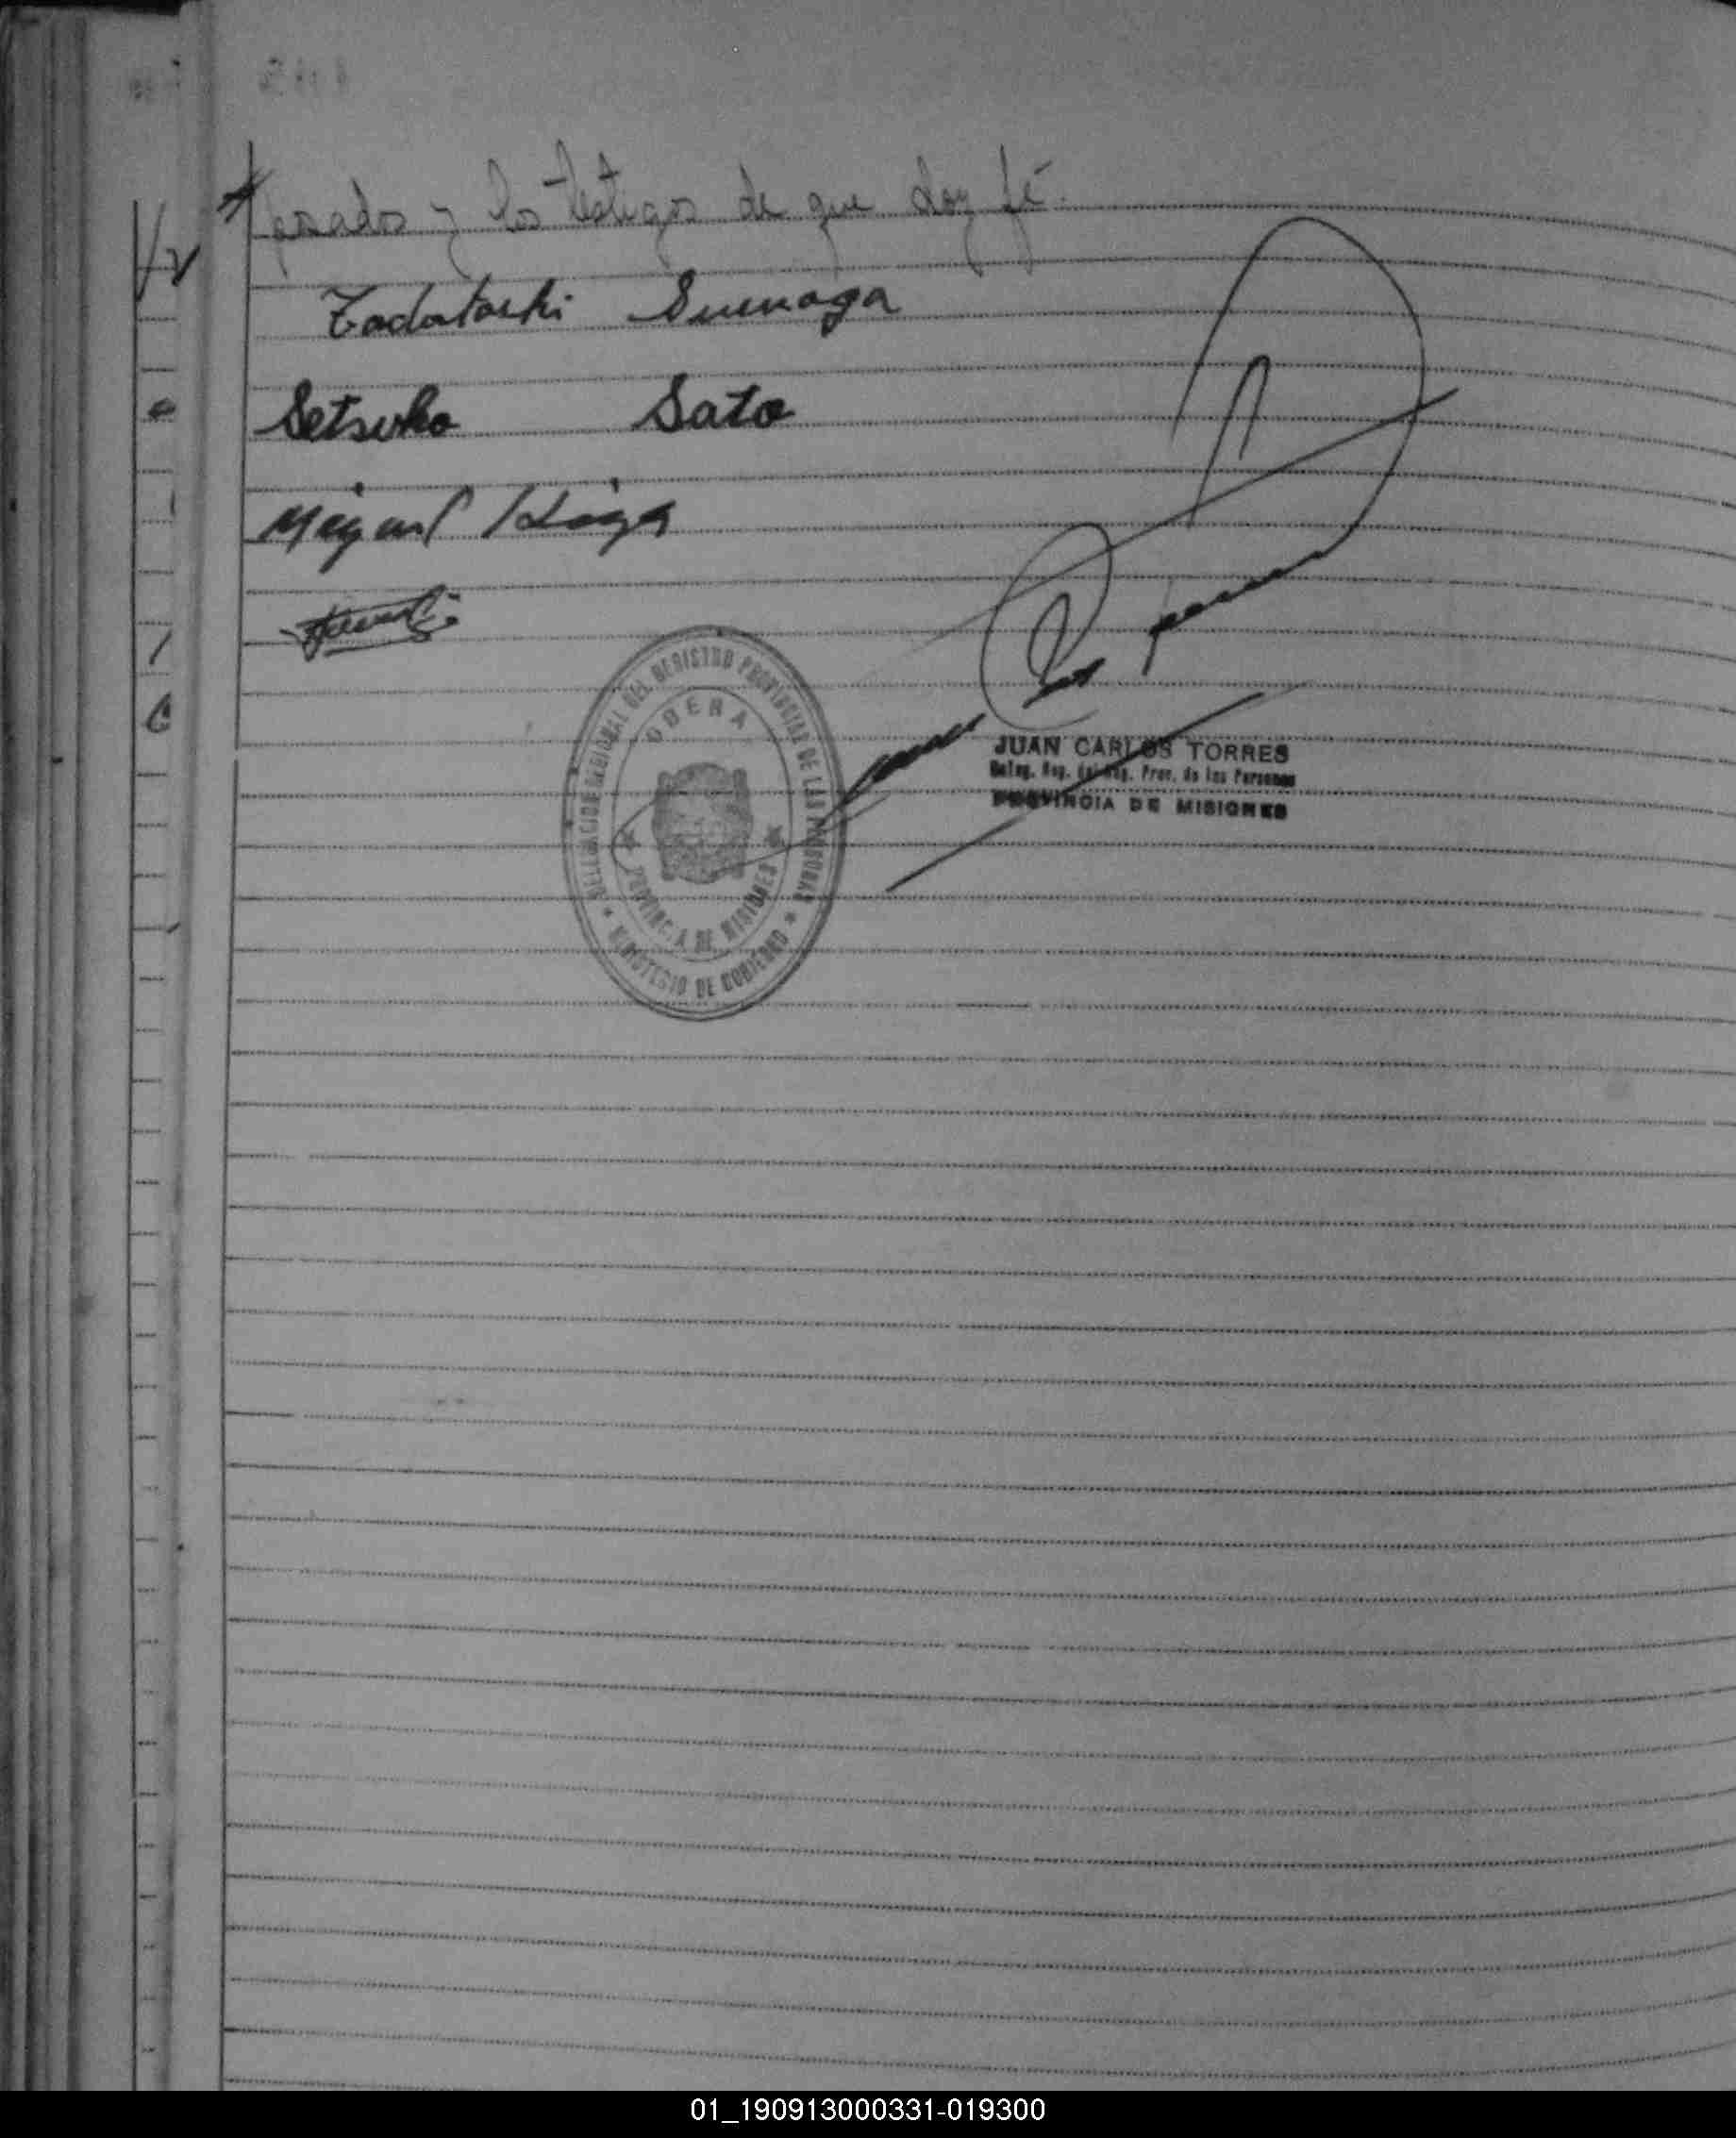 posados y los testigos de que doy fé.
Tadatoshi Suenaga
Setsuko Sato
Miguel Higa
DELEGACION REGIONAL DEL REGISTRO PROVINCIAL DE LAS PERSONAS
OBERA
PROVINCIA DE MISIONES
MINISTERIO DE GOBIERNO
JUAN CARLOS TORRES
Deleg. Reg. del Reg. Prov. de las Personas
PROVINCIA DE MISIONES
01_190913000331-019300